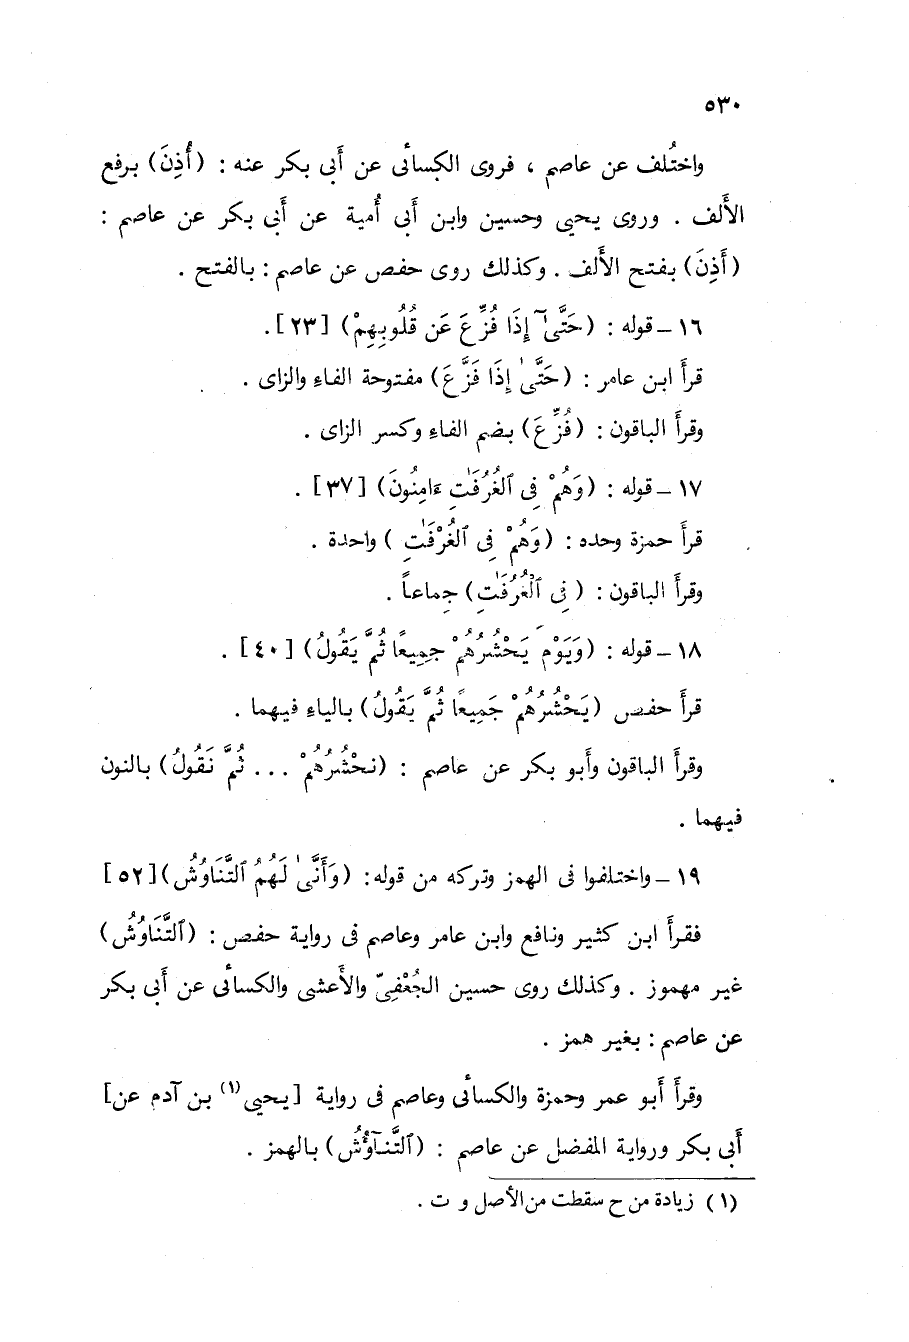 ٥٣٠
واختُلف عن عاصم ، فروى الكسائى عن أَبى بكر عنه : (أُذِنَ) برفع
الأَلف . وروى يحيى وحسين وابن أَبى أُمية عن أَبى بكر عن عاصم :
(أَذِنَ) بفتح الأَلف . وكذلك روى حفص عن عاصم : بالفتح .
١٦ – قوله : (حَتَّىٰٓ إِذَا فُزِّعَ عَن قُلُوبِهِمْ) [٢٣].
قرأَ ابن عامر : (حَتَّىٰ إِذَا فَزَّعَ) مفتوحة الفاءِ والزاى .
وقرأَ الباقون : (فُزِّعَ) بضم الفاءِ وكسر الزاى .
١٧ – قوله : (وَهُمْ فِى ٱلْغُرُفَٰتِ ءَامِنُونَ) [٣٧] .
قرأَ حمزة وحده : (وَهُمْ فِى ٱلْغُرْفَٰتِ ) واحدة .
وقرأَ الباقون : ( فِى ٱلْغُرُفَٰتِ) جماعاً .
١٨ – قوله : (وَيَوْمَ يَحْشُرُهُمْ جَمِيعًا ثُمَّ يَقُولُ) [٤٠] .
قرأَ حفص (يَحْشُرُهُمْ جَمِيعًا ثُمَّ يَقُولُ) بالياءِ فيهما .
وقرأَ الباقون وأَبو بكر عن عاصم : (نحْشُرُهُمْ ... ثُمَّ نَقُولُ) بالنون
فيهما .
١٩ – واختلفوا فى الهمز وتركه من قوله: (وَأَنَّىٰ لَهُمُ ٱلتَّنَاوُشُ)[٥٢]
فقرأَ ابن كثير ونافع وابن عامر وعاصم فى رواية حفص : (ٱلتَّنَاوُشُ)
غير مهموز . وكذلك روى حسين الجُعْفِىّ والأَعشى والكسائى عن أَبى بكر
عن عاصم : بغير همز .
وقرأَ أَبو عمر وحمزة والكسائى وعاصم فى رواية [يحيى(١) بن آدم عن]
أَبى بكر ورواية المفضل عن عاصم : (ٱلتَّنَآؤُشُ) بالهمز .
(١) زيادة من ح سقطت من الأَصل و ت .